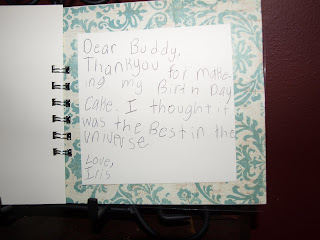 Dear Buddy,
Thankyou for make-
ing my Birth Day
Cake. I thought it
was the Best in the
universe
Love,
Iris